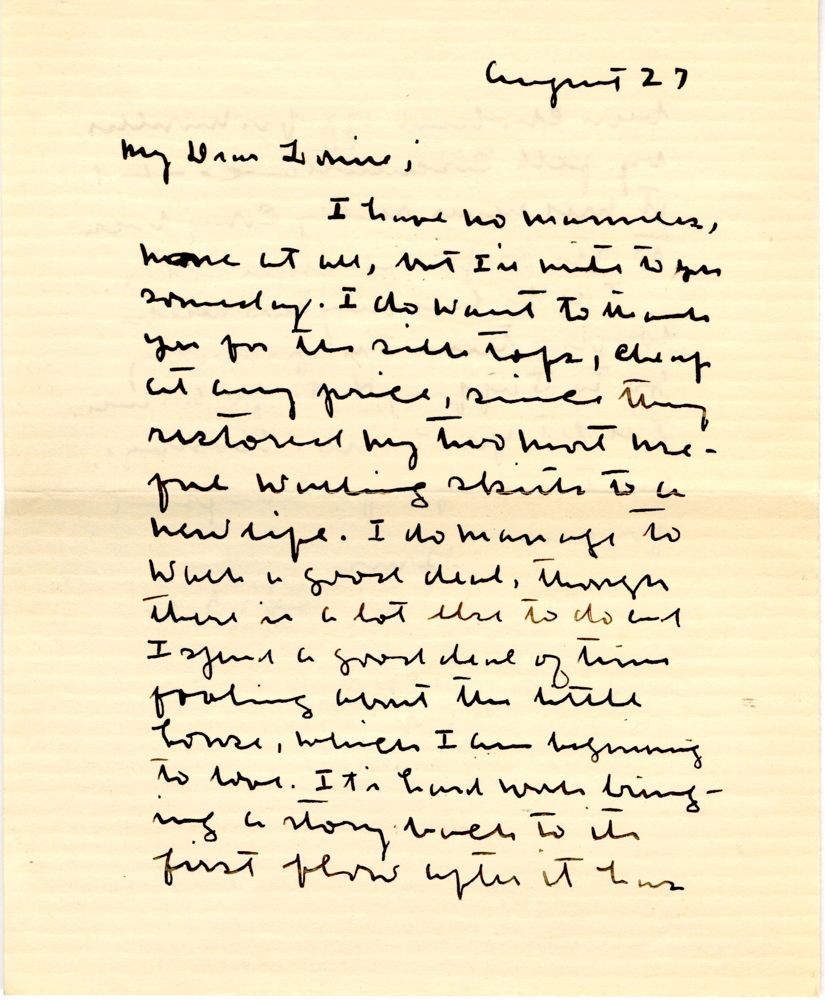 August 27
My Dear Louise;
I have no manners,
none at all, but I'll write to you
someday. I do want to thank
you for the silk tops, cheap
at any price, since they
restored my two most use-
ful walking skirts to a
new life. I do manage to
walk a good deal, though
there is a lot else to do and
I spend a good deal of time
fooling about the little
house, which I am beginning
to love. It's hard work bring-
ing a story back to its
first flow after it has